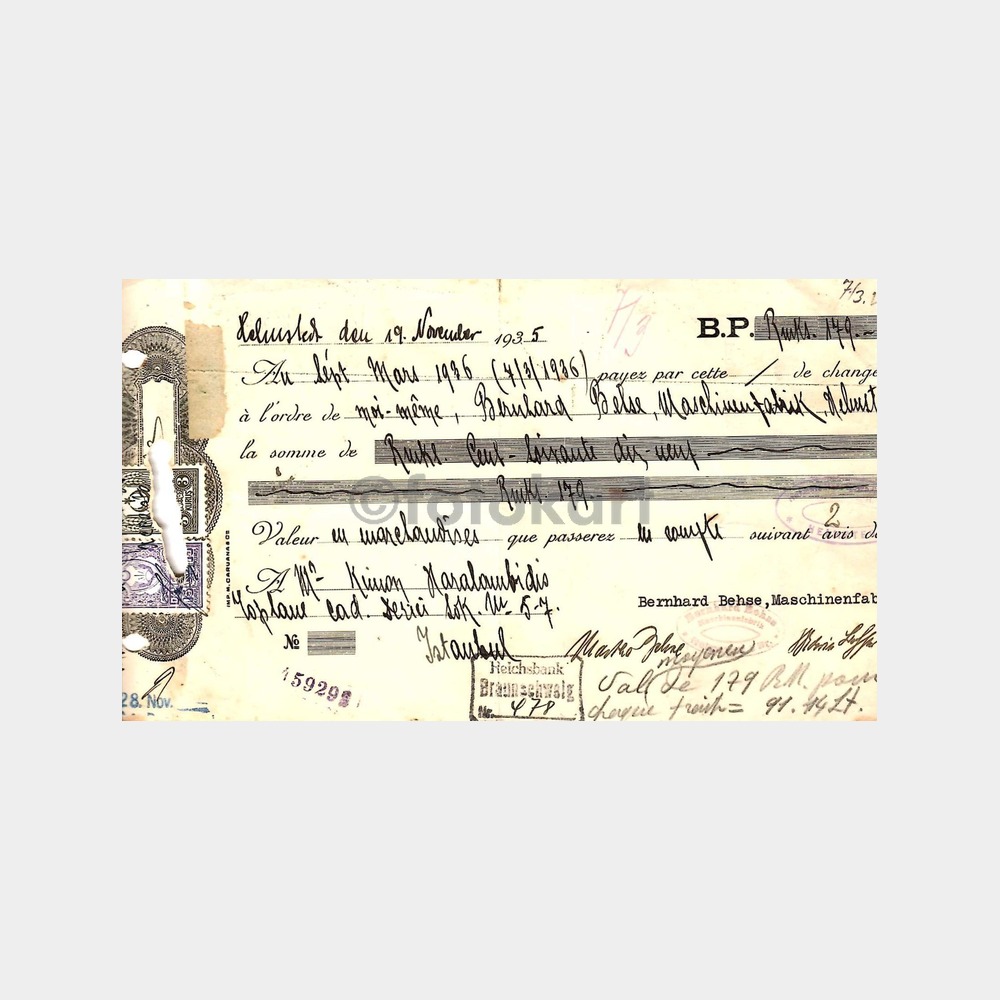 7/3.
Helmstedt den 19. November 1935
7/3
B.P. Rmks. 179.-
Au Sépt Mars 1936 (7/3/1936) payez par cette de change
à l'ordre de moi-même, Bernhard Behse, Maschinenfabrik, Helmst
la somme de Rmks. Cent-Soixante dix-neuf
Rmks. 179
©fotokart
Valeur en marchandises que passerez en compte suivant avis de
2
A Mr Kimon Haralambidis
Toplane Cad. Terici Sok. No 5-7.
Bernhard Behse, Maschinenfab
Bernhard Behse
Maschinenfabrik
No
Istanbul
IMP. M. CARUANA & CO
159293
Reichsbank
Braunschweig
Nr. 478
28. Nov.
179 RM. pour
chaque 91.14